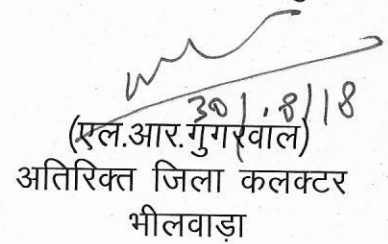 30/8/18
(एल.आर.गुगरवाल)
अतिरिक्त जिला कलक्टर
भीलवाड़ा